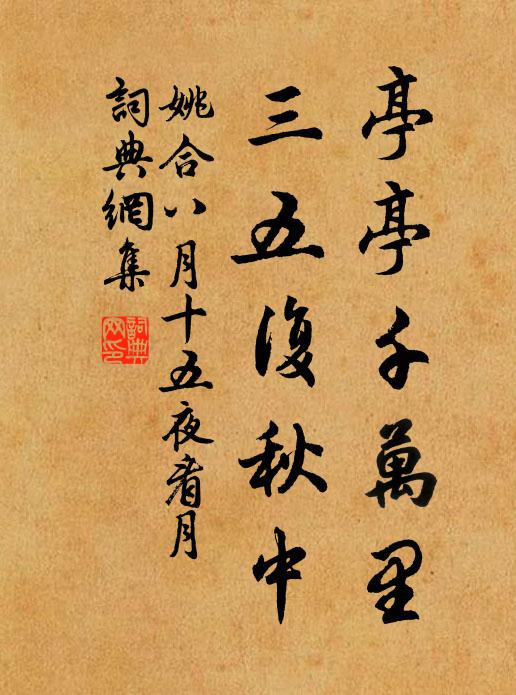 亭亭千萬里
三五復秋中
姚合八月十五夜看月
詞典網集
詞典網印